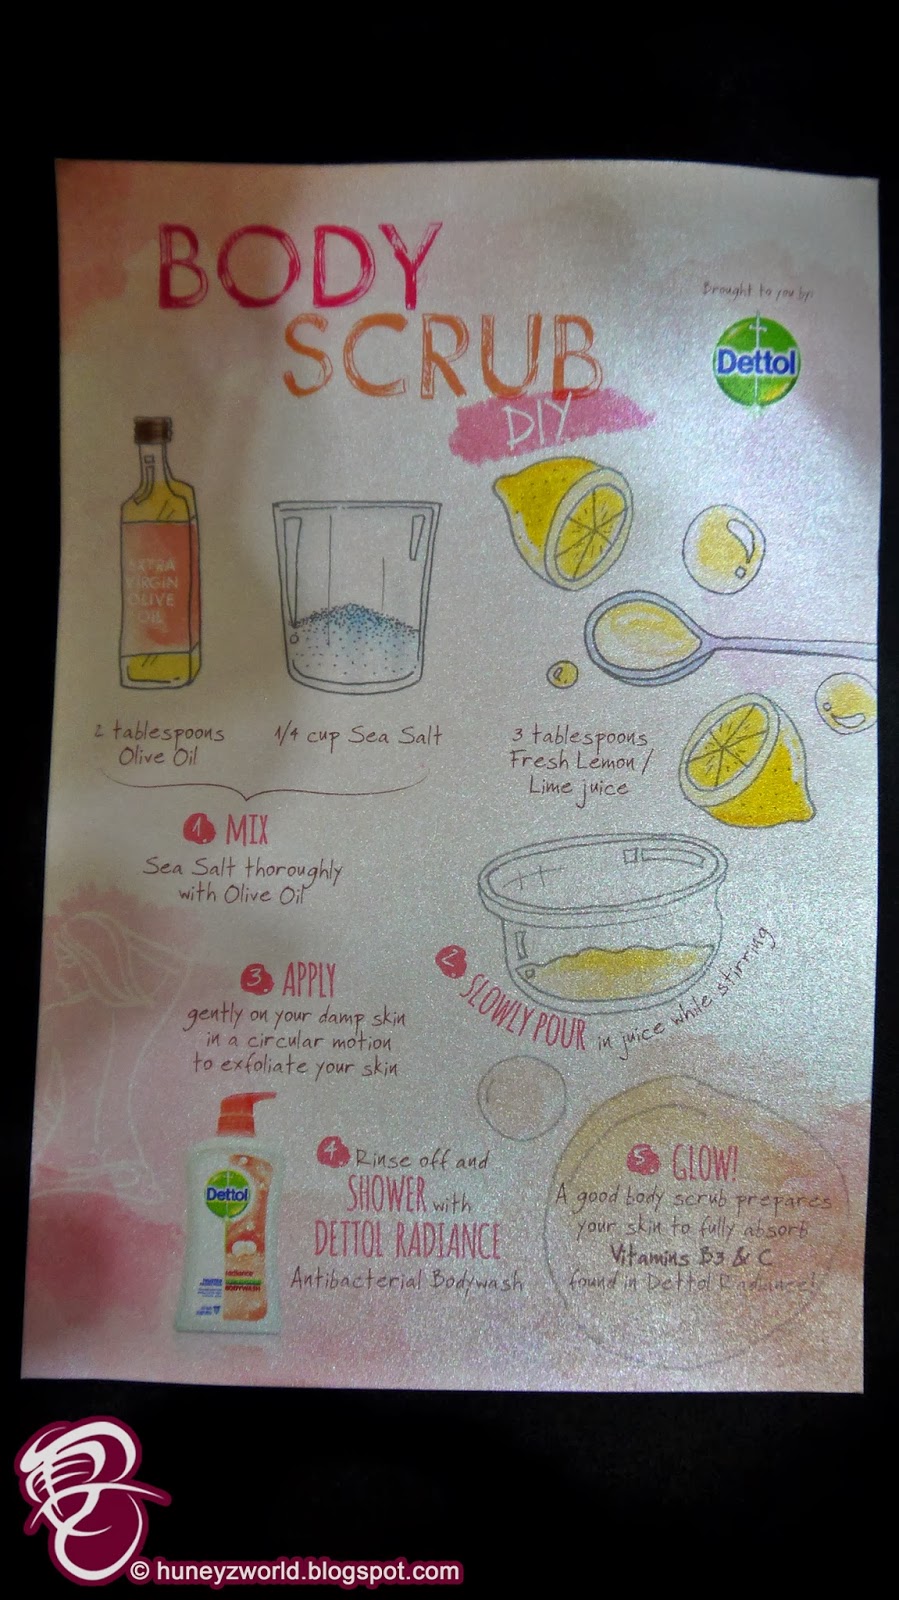 BODY
SCRUB
DIY
Brought to you by:
Dettol
EXTRA
VIRGIN
OLIVE
OIL
2 tablespoons
Olive Oil
1/4 cup Sea Salt
3 tablespoons
Fresh Lemon /
Lime juice
1. MIX
Sea Salt thoroughly
with Olive Oil
2. SLOWLY POUR in juice while stirring
3. APPLY
gently on your damp skin
in a circular motion
to exfoliate your skin
Dettol
radiance
BODYWASH
4. Rinse off and
SHOWER with
DETTOL RADIANCE
Antibacterial Bodywash
5. GLOW!
A good body scrub prepares
your skin to fully absorb
Vitamins B3 & C
found in Dettol Radiance!
© huneyzworld.blogspot.com